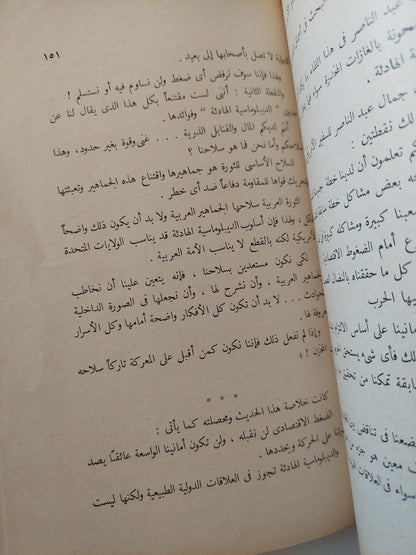 ١٥١
الدولية لا تصل بأصحابها إلى بعيد .
ولهذا فإننا سوف نرفض أى ضغط ولن نساوم فيه أو نستسلم !
والنقطة الثانية : أننى لست مقتنعاً بكل هذا الذى يقال لنا عن
جدوى « الديبلوماسية الهادئة » وفوائدها .
أنتم لديكم المال والقنابل الذرية . . . غنى وقوة بغير حدود، وهذا
سلاحكم وأما نحن فما هو سلاحنا ؟
السلاح الأساسى للثورة هو جماهيرها واقتناع هذه الجماهير وتعبئتها
وتحريك قواها للمقاومة دفاعاً ضد أى خطر .
الثورة العربية سلاحها الجماهير العربية ولا بد أن يكون ذلك واضحاً
، ولهذا فإن أسلوب الديبلوماسية الهادئة قد يناسب الولايات المتحدة
الأمريكية لكنه بالقطع لا يناسب الأمة العربية .
لكى نكون مستعدين بسلاحنا ، فإنه يتعين علينا أن نخاطب
الجماهير العربية ، وأن نشرح لها ، وأن نجعلها فى الصورة الداخلية
للحوادث . . . لا بد أن تكون كل الأفكار واضحة أمامها وكل الأسرار
معروفة لها .
وإذا لم نفعل ذلك فإننا نكون كمن أقبل على المعركة تاركاً سلاحه
المخزن ! »
* * *
كانت خلاصة هذا الحديث ومحصلته كما يأتى :
الضغط الاقتصادى لن نقبله ، ولن تكون أمانينا الواسعة عائقنا يصد
على الحركة ويحددها .
والديبلوماسية الهادئة تجوز فى العلاقات الدولية الطبيعية ولكنها ليست
البحث فى
عبد الناصر فى هذا اللقاء
بالغازات المخدرة سواء فى
الهادئة .
جمال عبد الناصر
نقطتين :
تعلمون أن لدينا خطة
بعض مشاكل خطة سابقة
كبيرة ومشاكله كبيرة
أمام الضغوط الاقتصادية
كل ما حققناه بالنضال
الحرب
أمانينا على أساس
فأى شىء يستحق
سابقة تمكنا من تحقيق
تضعنا فى تناقض بين
معين هو جزء من
سواء فى العلاقات